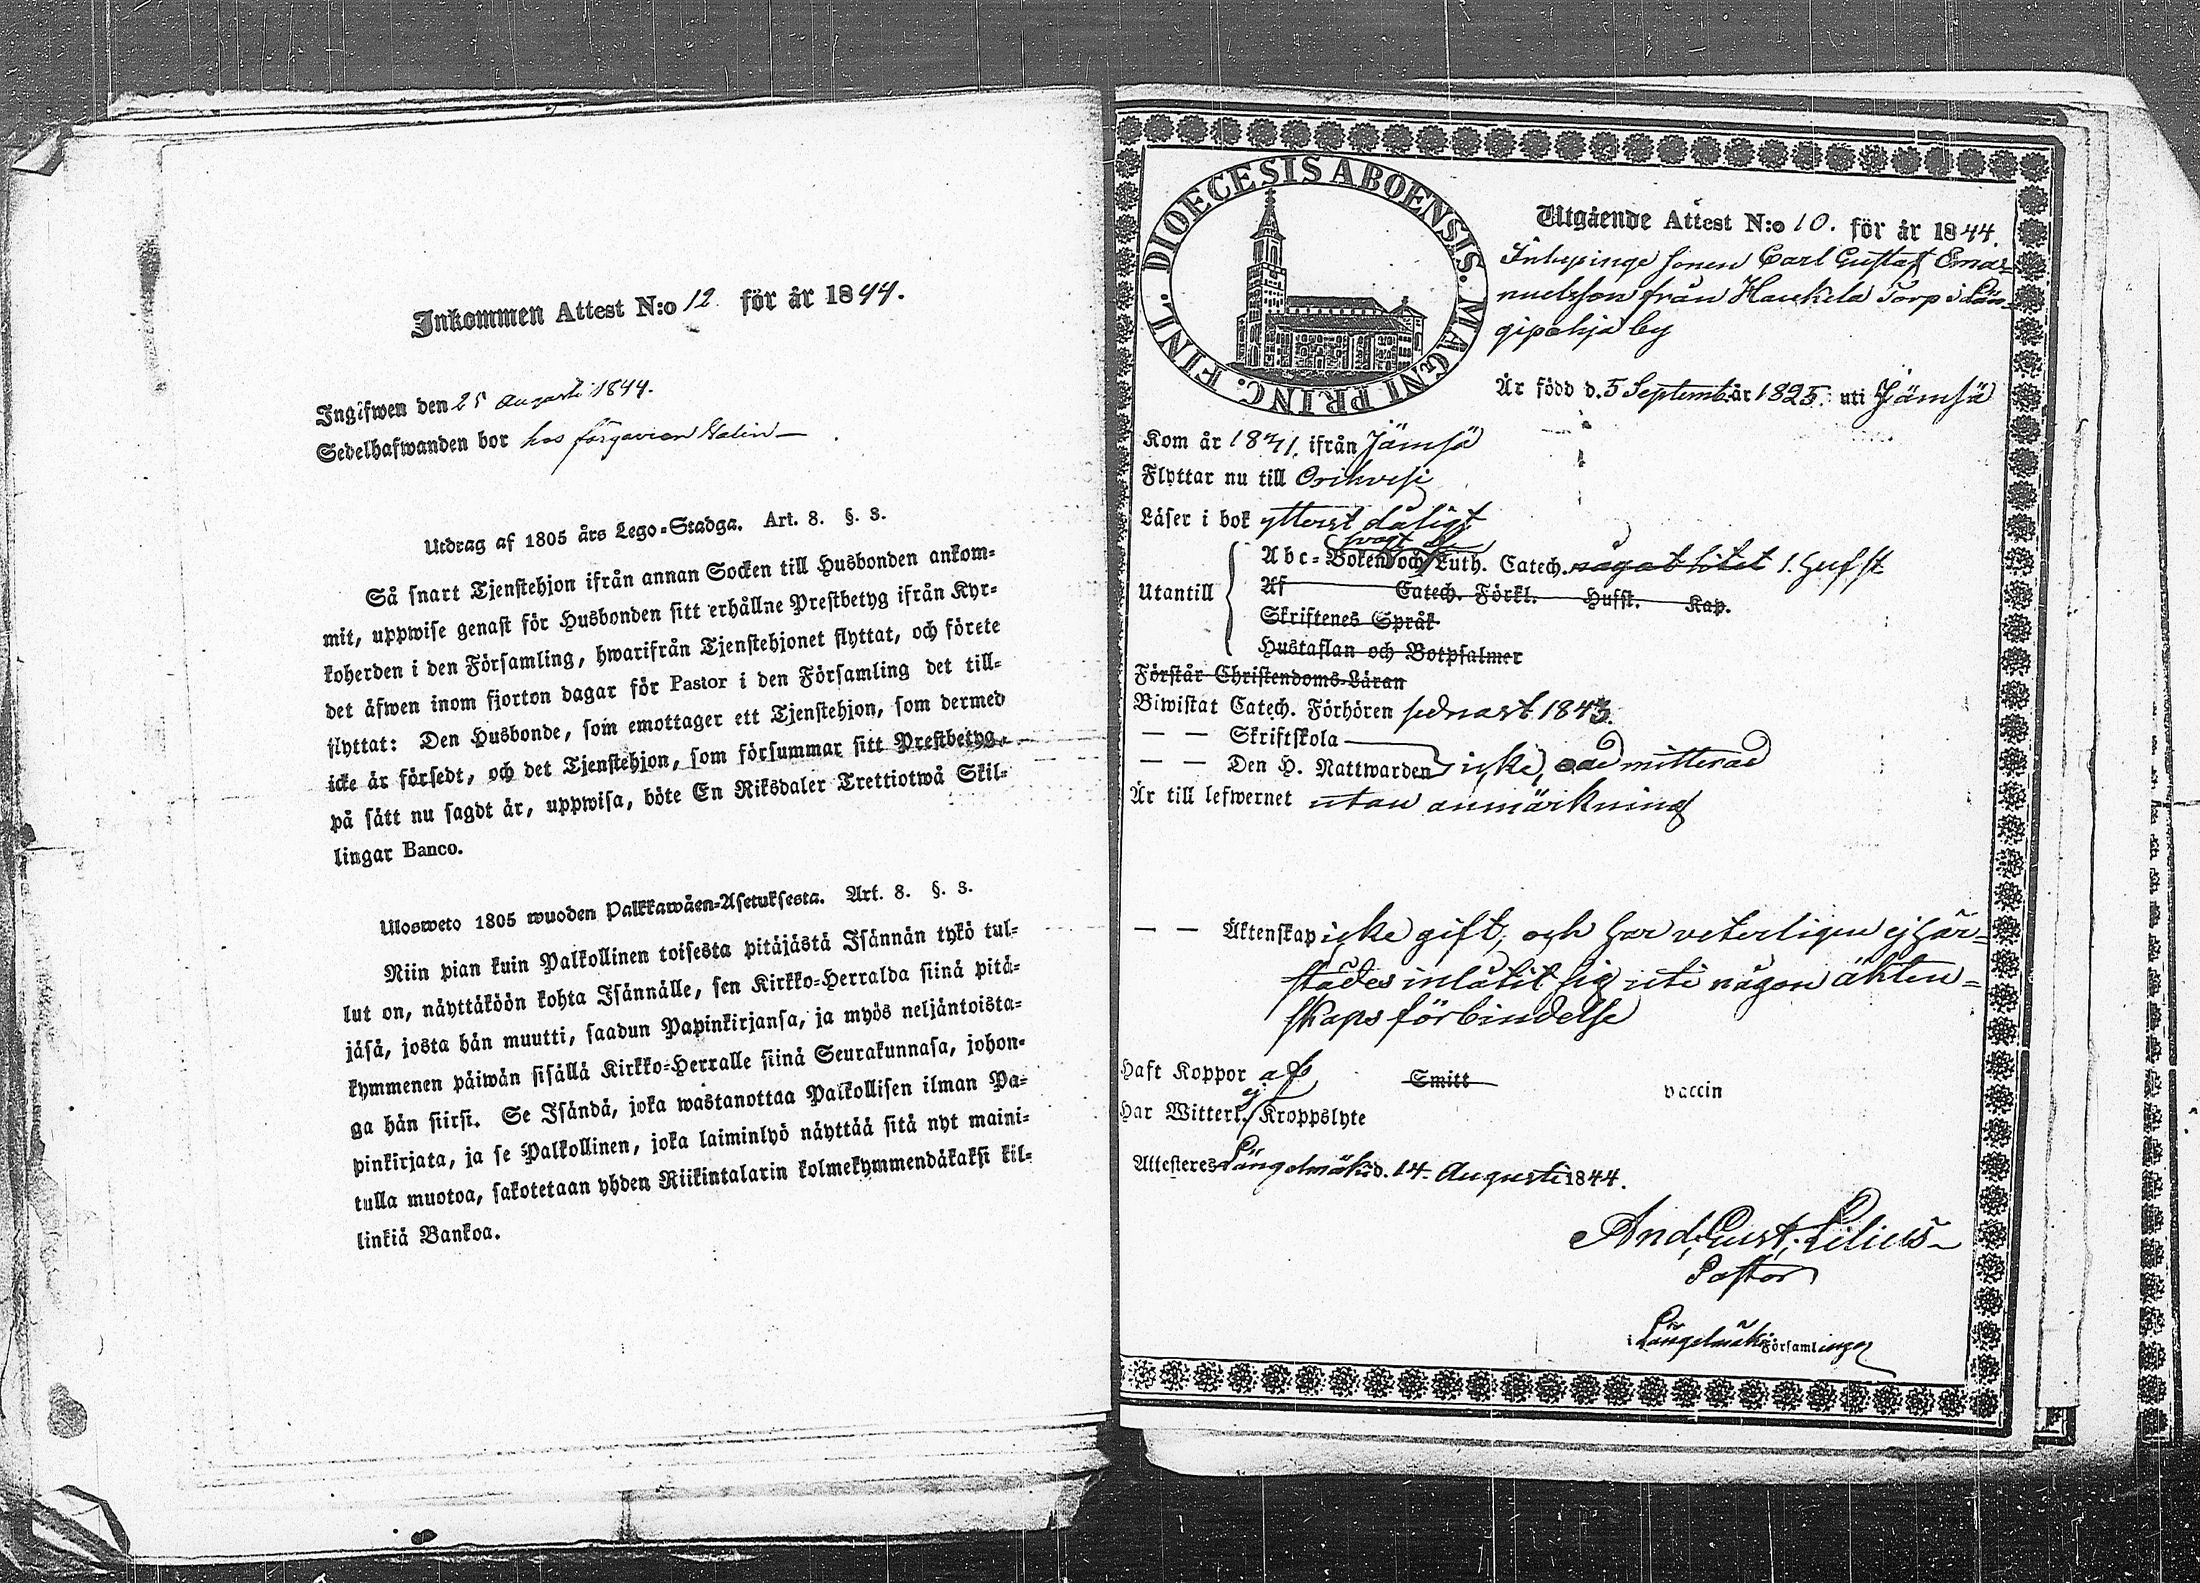 Inkommen Attest N:o 12 för år 1844.
Ingifwen den 25 Augusti 1844.
Sedelhafwanden bor hos färgaren Malin
Utdrag af 1805 års Lego-Stadga. Art. 8. §. 3.
Så snart Tjenstehjon ifrån annan Socken till Husbonden ankom-
mit, uppwise genast för Husbonden sitt erhållne Prestbetyg ifrån Kyr-
koherden i den Församling, hwarifrån Tjenstehjonet flyttat, och förete
det äfwen inom fjorton dagar för Pastor i den Församling det till-
flyttat: Den Husbonde, som emottager ett Tjenstehjon, som dermed
icke är försedt, och det Tjenstehjon, som försummar sitt Prestbetyg,
på sätt nu sagdt är, uppwisa, böte En Riksdaler Trettiotwå Skil-
lingar Banco.
Ulosweto 1805 wuoden Palkkawäen-Asetuksesta. Art. 8. §. 3.
Niin pian kuin Palkollinen toisesta pitäjästä Isännän tykö tul-
lut on, näyttäköön kohta Isännälle, sen Kirkko-Herralda siinä pitä-
jäsä, josta hän muutti, saadun Papinkirjansa, ja myös neljäntoista-
kymmenen päiwän sisällä Kirkko-Herralle siinä Seurakunnasa, johon-
ga hän siirsi. Se Isändä, joka wastanottaa Palkollisen ilman Pa-
pinkirjata, ja se Palkollinen, joka laiminlyö näyttää sitä nyt maini-
tulla muotoa, sakotetaan yhden Riikintalarin kolmekymmendäkaksi kil-
linkiä Bankoa.
DIOECESIS ABOENSIS. MAGNI PRINC. FINL.
Utgående Attest N:o 10. för år 1844.
Inhysinge sonen Carl Gustaf Ema-
nuelsson från Haukela Torp i Län-
gipohja by
Är född d. 5 Septemb. år 1825. uti Jämsä
Kom år 1841. ifrån Jämsä
Flyttar nu till Orihvesi
Läser i bok ytterst dåligt
svagt
Utantill
Abc-Boken och Luth. Catech. något litet 1. Hufst
Af Catech. Förkl. Hufst. Kap.
Skriftenes Språk
Hustaflan och Botpsalmer
Förstår Christendoms-Läran
Biwistat Catech. Förhören sednast 1843.
— — Skriftskola
— — Den H. Nattwarden icke admitterad
Är till lefwernet utan anmärkning
— — Äktenskap icke gift, och har veterligen ej här-
städes inlåtit sig uti någon äkten-
skaps förbindelse
Haft Koppor af Smitt vaccin
Har Witterl. ej Kroppslyte
Attesteres Längelmäki d. 14 Augusti 1844.
And. Gust. Lilius
Pastor
i Längelmäki Församlinga